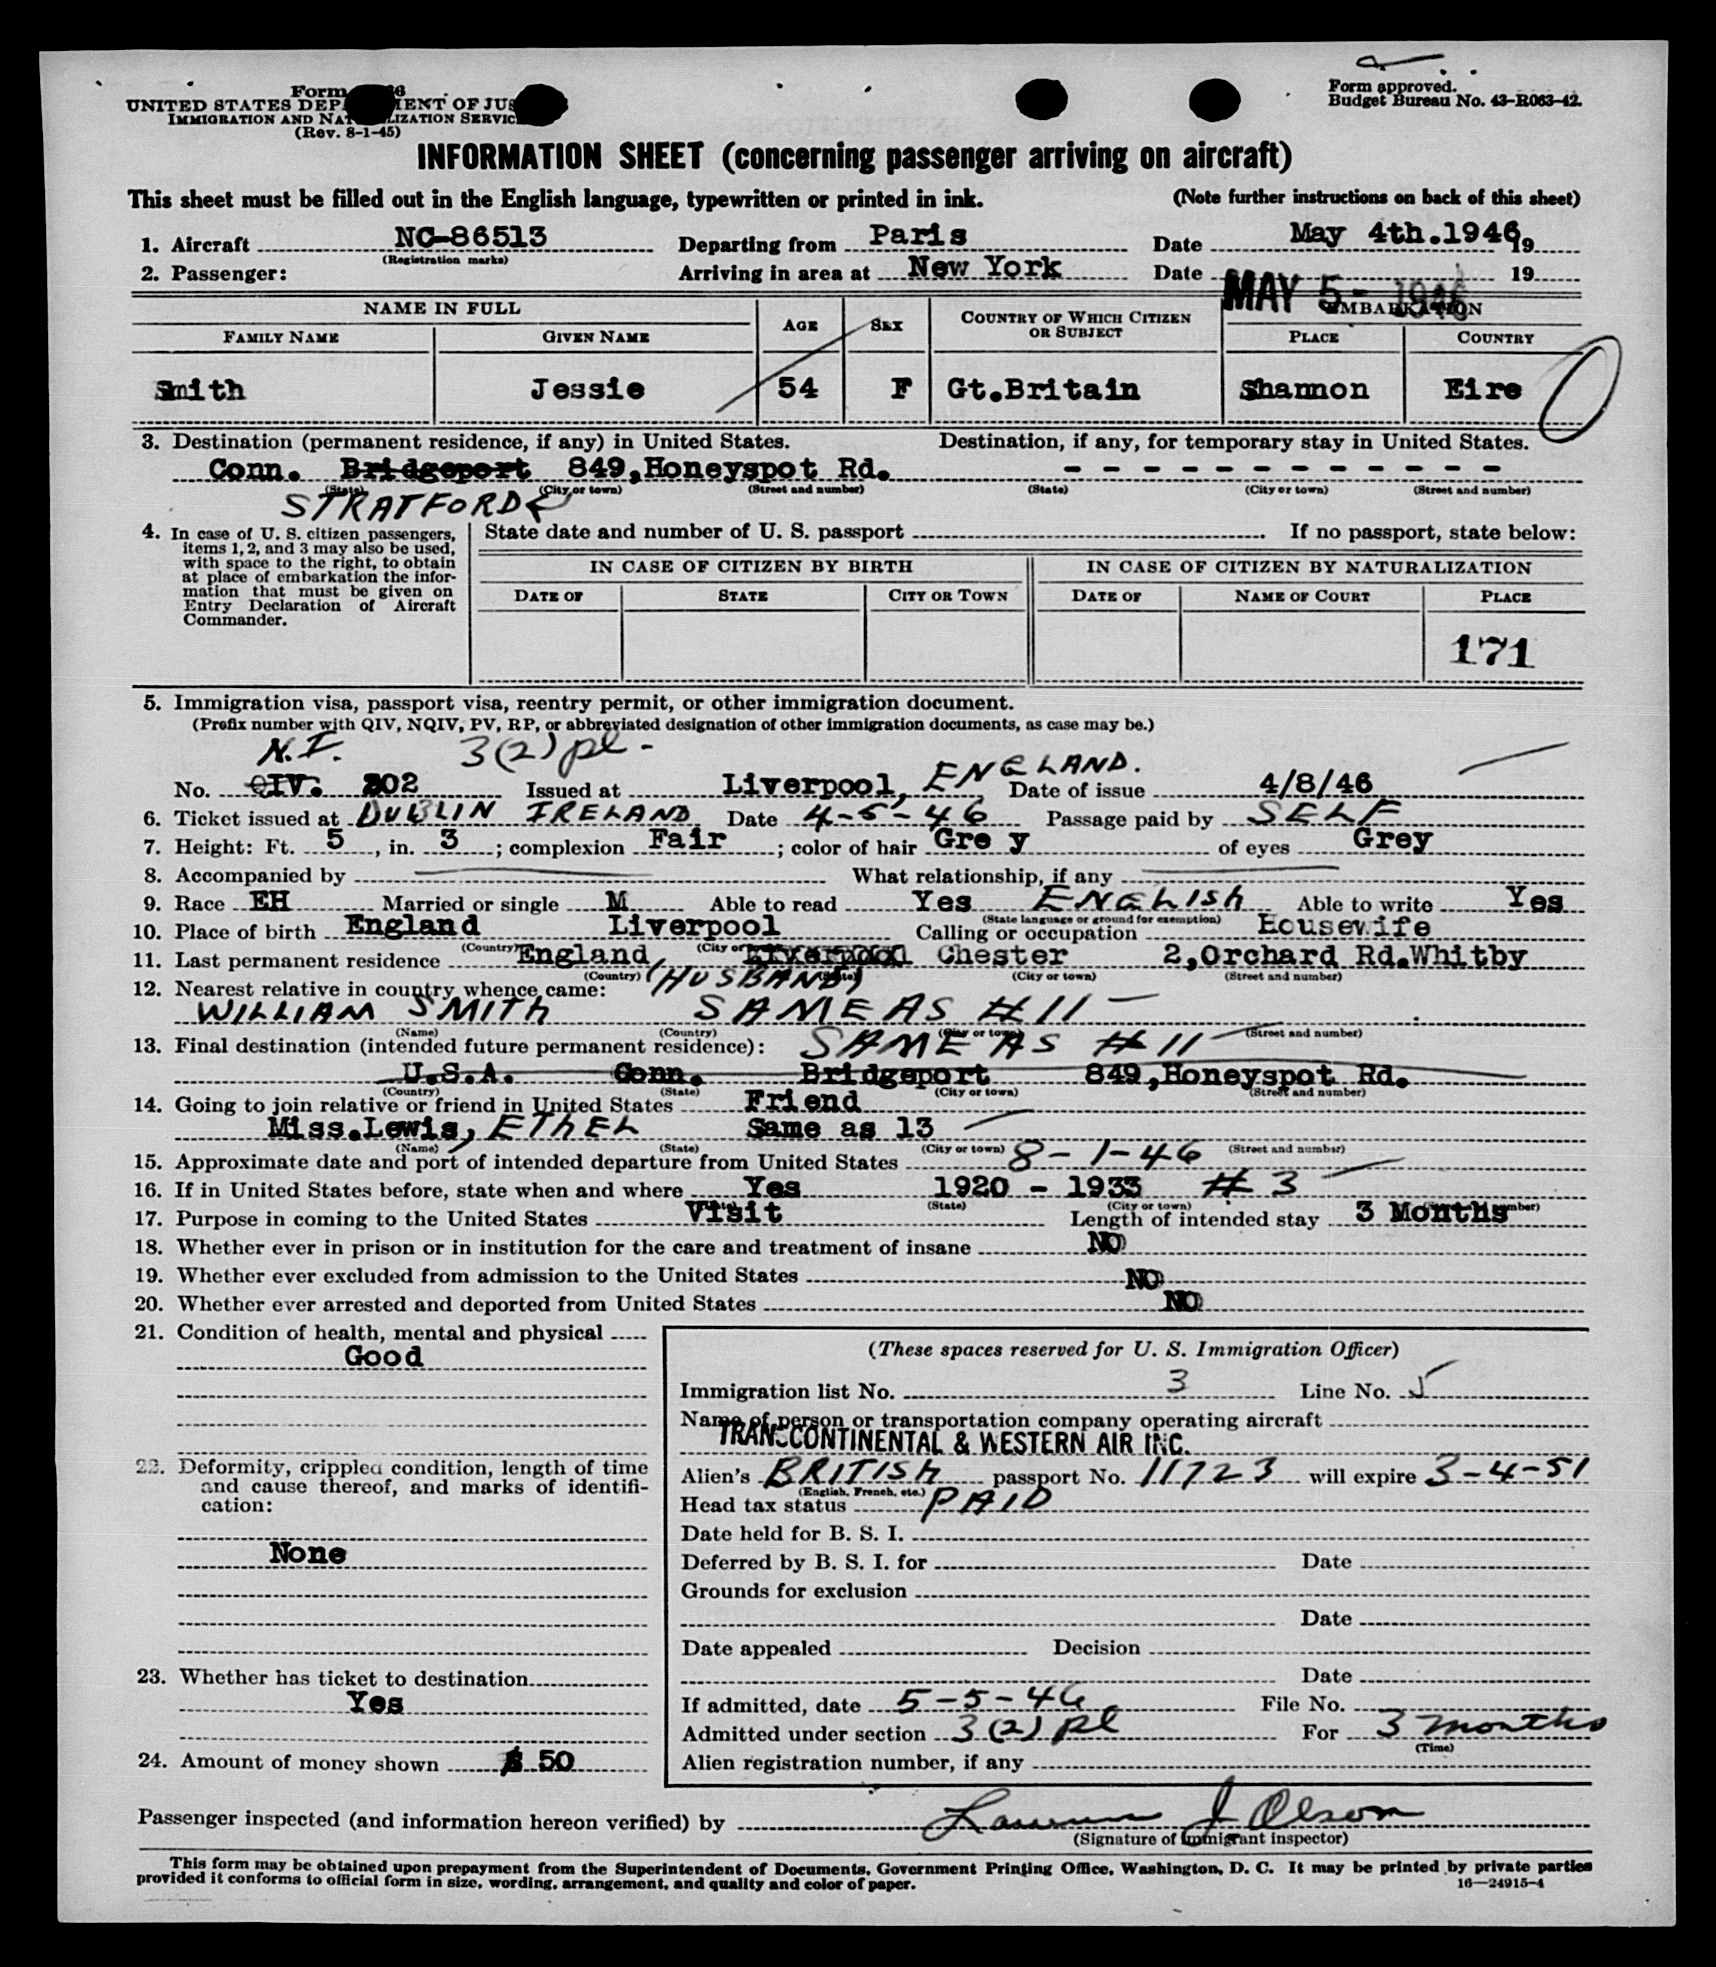 Form
UNITED STATES DEPARTMENT OF JUS
IMMIGRATION AND NATURALIZATION SERVIC
(Rev. 8-1-45)
Form approved.
Budget Bureau No. 43-R063-42.
INFORMATION SHEET (concerning passenger arriving on aircraft)
This sheet must be filled out in the English language, typewritten or printed in ink. (Note further instructions on back of this sheet)
1. Aircraft NC-86513 Departing from Paris Date May 4th.1946 19
(Registration marks)
2. Passenger: Arriving in area at New York Date MAY 5- 1946 19
NAME IN FULL AGE SEX COUNTRY OF WHICH CITIZEN OR SUBJECT EMBARKATION
FAMILY NAME GIVEN NAME PLACE COUNTRY
Smith Jessie 54 F Gt.Britain Shannon Eire
3. Destination (permanent residence, if any) in United States. Destination, if any, for temporary stay in United States.
Conn. Bridgeport 849,Honeyspot Rd. - - - - - - - - - - - -
(State) (City or town) (Street and number) (State) (City or town) (Street and number)
STRATFORD
4. In case of U. S. citizen passengers, items 1, 2, and 3 may also be used, with space to the right, to obtain at place of embarkation the information that must be given on Entry Declaration of Aircraft Commander.
State date and number of U. S. passport . If no passport, state below:
IN CASE OF CITIZEN BY BIRTH IN CASE OF CITIZEN BY NATURALIZATION
DATE OF STATE CITY OR TOWN DATE OF NAME OF COURT PLACE
171
5. Immigration visa, passport visa, reentry permit, or other immigration document.
(Prefix number with QIV, NQIV, PV, RP, or abbreviated designation of other immigration documents, as case may be.)
N.I. 3(2) pl -
No. QIV. 202 Issued at Liverpool, ENGLAND. Date of issue 4/8/46
6. Ticket issued at DUBLIN IRELAND Date 4-5-46 Passage paid by SELF
7. Height: Ft. 5, in. 3; complexion Fair; color of hair Gre y of eyes Grey
8. Accompanied by What relationship, if any
9. Race EH Married or single M Able to read Yes ENGLISH Able to write Yes
(State language or ground for exemption)
10. Place of birth England Liverpool Calling or occupation Housewife
(Country) (City or town)
11. Last permanent residence England, Liverpool Chester 2,Orchard Rd.Whitby
(Country) (State) (City or town) (Street and number)
12. Nearest relative in country whence came: (HUSBAND)
WILLIAM SMITH SAME AS #11 -
(Name) (Country) (City or town) (Street and number)
13. Final destination (intended future permanent residence): SAME AS #11
U.S.A. Conn. Bridgeport 849,Honeyspot Rd.
(Country) (State) (City or town) (Street and number)
14. Going to join relative or friend in United States Friend
Miss.Lewis, ETHEL Same as 13
(Name) (State) (City or town) (Street and number)
15. Approximate date and port of intended departure from United States 8-1-46
16. If in United States before, state when and where Yes 1920 - 1933 #3
(State) (City or town)
17. Purpose in coming to the United States Visit Length of intended stay 3 Months
18. Whether ever in prison or in institution for the care and treatment of insane NO
19. Whether ever excluded from admission to the United States NO
20. Whether ever arrested and deported from United States NO
21. Condition of health, mental and physical
Good
22. Deformity, crippled condition, length of time and cause thereof, and marks of identification:
None
23. Whether has ticket to destination
Yes
24. Amount of money shown $ 50
(These spaces reserved for U. S. Immigration Officer)
Immigration list No. 3 Line No. 5
Name of person or transportation company operating aircraft
TRANSCONTINENTAL & WESTERN AIR INC.
Alien's BRITISH passport No. 11723 will expire 3-4-51
(English, French, etc.)
Head tax status PAID
Date held for B. S. I.
Deferred by B. S. I. for Date
Grounds for exclusion
Date
Date appealed Decision
Date
If admitted, date 5-5-46 File No.
Admitted under section 3(2) pl For 3 months
(Time)
Alien registration number, if any
Passenger inspected (and information hereon verified) by J Olson
(Signature of immigrant inspector)
This form may be obtained upon prepayment from the Superintendent of Documents, Government Printing Office, Washington, D. C. It may be printed by private parties
provided it conforms to official form in size, wording, arrangement, and quality and color of paper.
16—24915-4